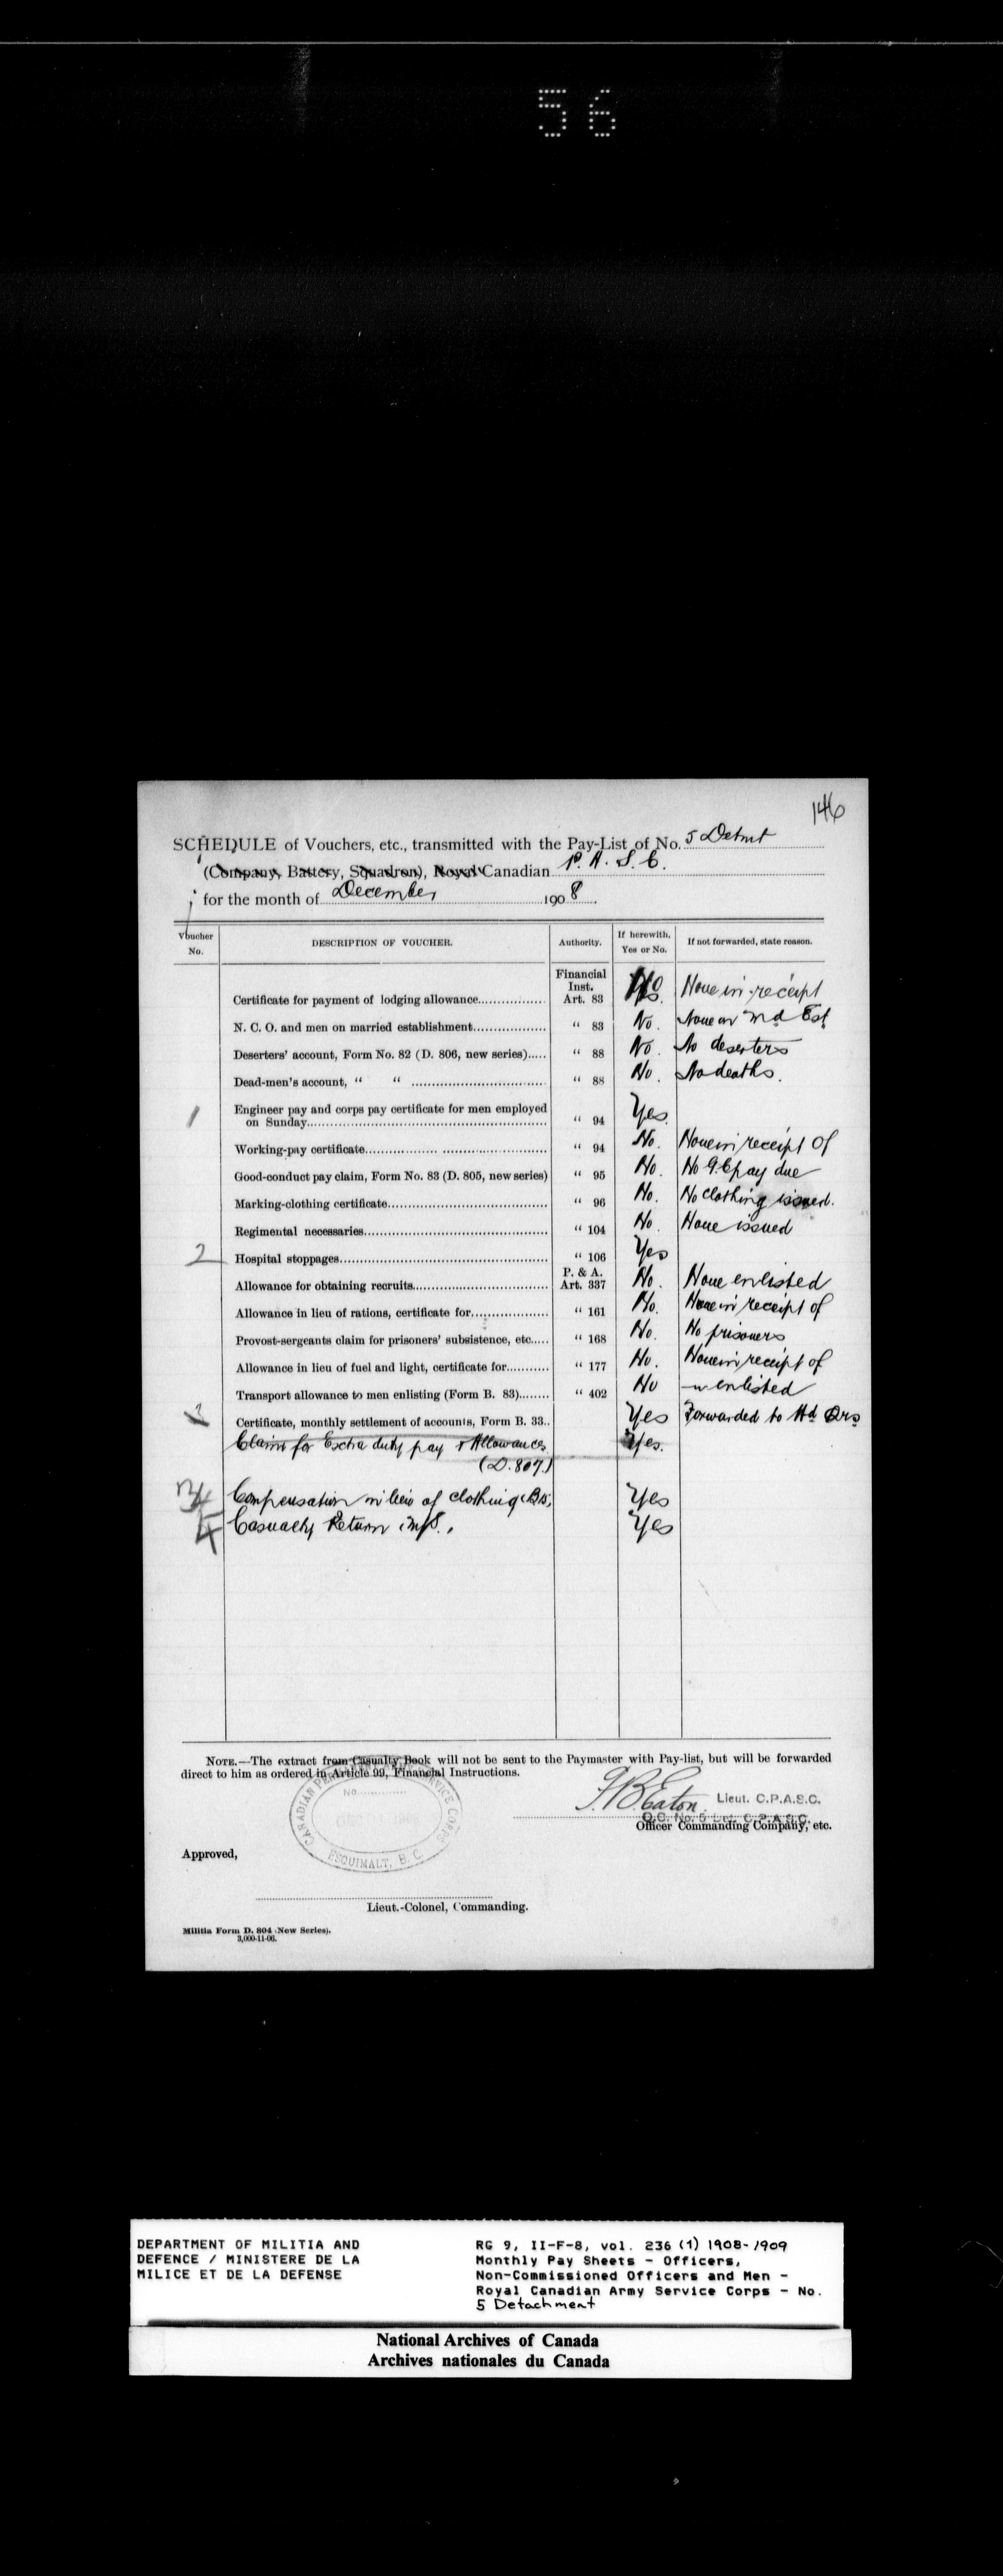 56
146
SCHEDULE of Vouchers, etc., transmitted with the Pay-List of No. 5 Detmt
(Company, Battery, Squadron), Royal Canadian P. A. S. C.
for the month of December 1908.
Voucher No. DESCRIPTION OF VOUCHER. Authority. If herewith, Yes or No. If not forwarded, state reason.
Financial Inst.
Certificate for payment of lodging allowance Art. 83 No. None in receipt
N. C. O. and men on married establishment " 83 No. None on Md Est
Deserters' account, Form No. 82 (D. 806, new series) " 88 No. No deserters
Dead-men's account, " " " 88 No. No deaths.
1 Engineer pay and corps pay certificate for men employed
on Sunday " 94 Yes.
Working-pay certificate " 94 No. None in receipt of
Good-conduct pay claim, Form No. 83 (D. 805, new series) " 95 No. No G.C pay due
Marking-clothing certificate " 96 No. No clothing issued.
Regimental necessaries " 104 No. None issued
2 Hospital stoppages " 106 Yes
P. & A.
Allowance for obtaining recruits Art. 337 No. None enlisted
Allowance in lieu of rations, certificate for " 161 No. None in receipt of
Provost-sergeants claim for prisoners' subsistence, etc. " 168 No. No prisoners
Allowance in lieu of fuel and light, certificate for " 177 No. None in receipt of
Transport allowance to men enlisting (Form B. 83) " 402 No enlisted
3 Certificate, monthly settlement of accounts, Form B. 33.. Yes Forwarded to Hd Qrs
Claim for Extra duty pay & Allowances Yes.
(D. 807.)
4 Compensation in lieu of clothing Yes
Casualty Return Yes
NOTE.—The extract from Casualty Book will not be sent to the Paymaster with Pay-list, but will be forwarded
direct to him as ordered in Article 99, Financial Instructions.
CANADIAN PERMANENT ARMY SERVICE CORPS
No.
ESQUIMALT. B. C.
F.B. Eaton. Lieut. C.P.A.S.C.
O.C. No. 5 Det. C.P.A.S.C.
Officer Commanding Company, etc.
Approved,
Lieut.-Colonel, Commanding.
Militia Form D. 804 (New Series).
3,000-11-06.
DEPARTMENT OF MILITIA AND
DEFENCE / MINISTERE DE LA
MILICE ET DE LA DEFENSE
RG 9, II-F-8, vol. 236 (1) 1908-1909
Monthly Pay Sheets - Officers,
Non-Commissioned Officers and Men -
Royal Canadian Army Service Corps - No.
5 Detachment
National Archives of Canada
Archives nationales du Canada